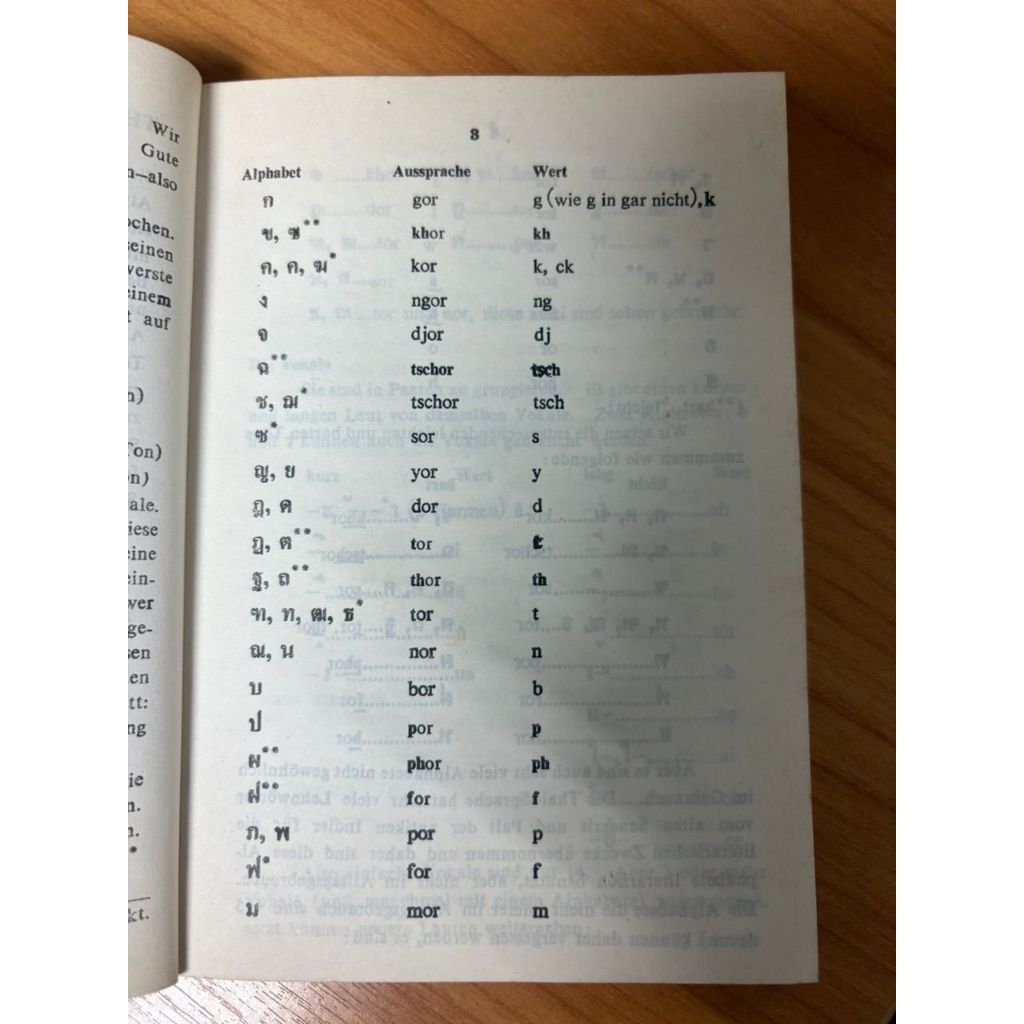 Wir
Gute
n—also
ochen.
seinen
verste
einem
t auf
n)
Ton)
n)
ale.
iese
eine
ein-
wer
ge-
sen
en
tt:
ng
ie
n.
n.
*
kt.
3
Alphabet Aussprache Wert
ก gor g (wie g in gar nicht), k
ข, ฃ** khor kh
ค, ฅ, ฆ* kor k, ck
ง ngor ng
จ djor dj
ฉ** tschor tsch
ช, ฌ* tschor tsch
ซ* sor s
ญ, ย yor y
ฎ, ด dor d
ฏ, ต** tor t
ฐ, ถ** thor th
ฑ, ท, ฒ, ธ* tor t
ณ, น nor n
บ bor b
ป por p
ผ** phor ph
ฝ** for f
ภ, พ por p
ฟ* for f
ม mor m